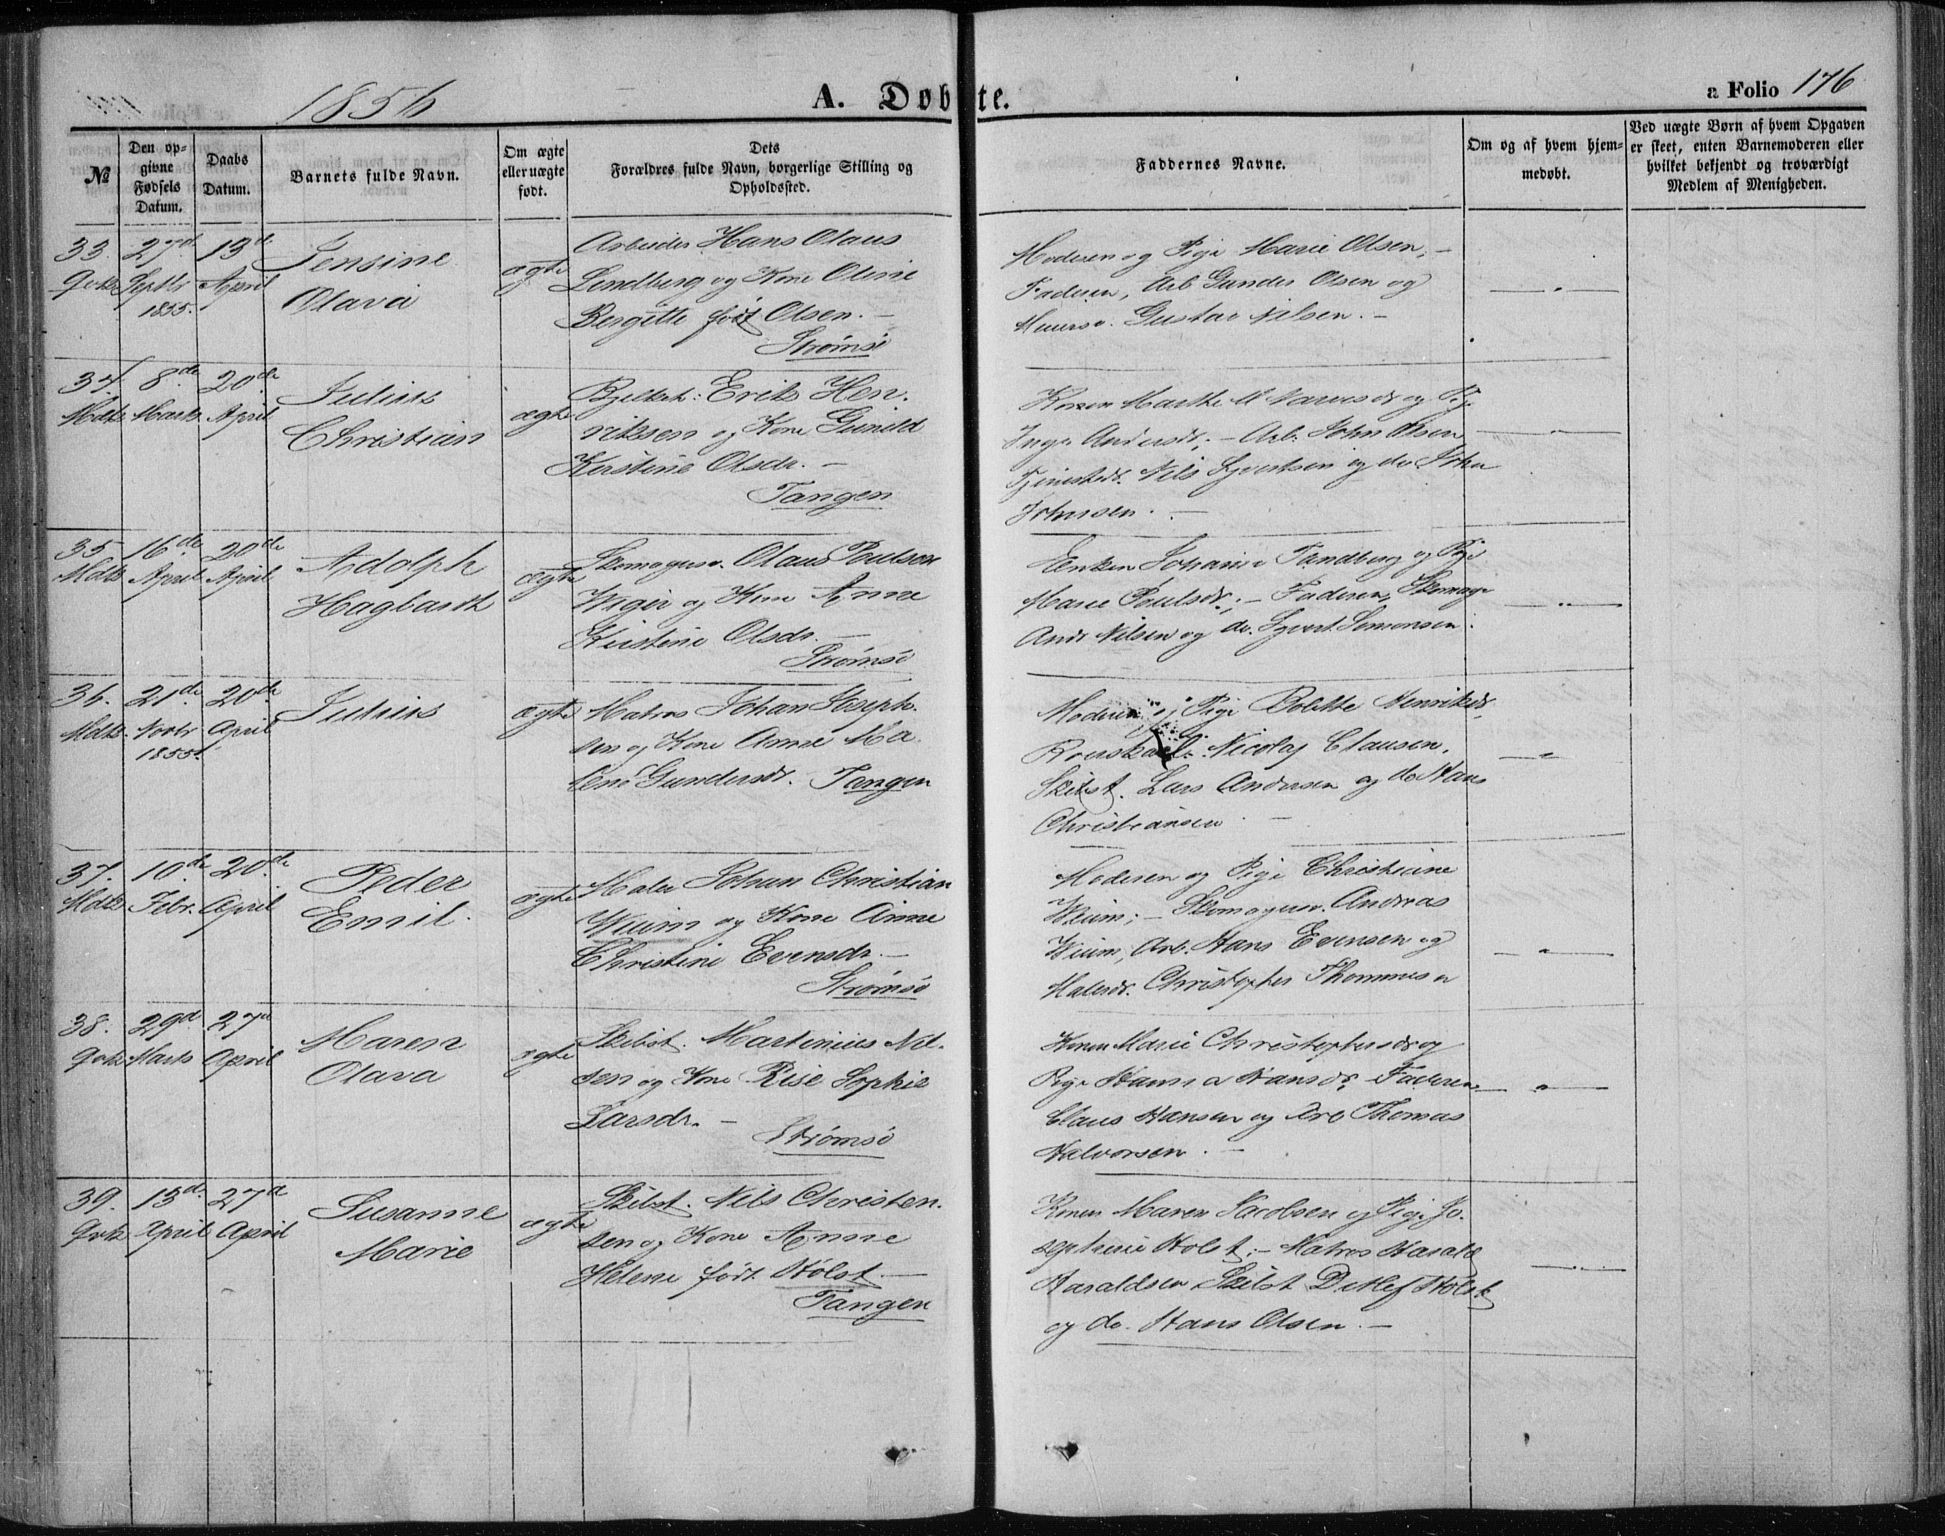 1856
A. Døbte.
a Folio 176
№
Den op-
givne
Fødsels
Datum.
Daabs
Datum.
Barnets fulde Navn.
Om ægte
eller uægte
født.
Dets
Forældres fulde Navn, borgerlige Stilling og
Opholdssted.
Faddernes Navne.
Om og af hvem hjem-
medøbt.
Ved uægte Børn af hvem Opgaven
er skeet, enten Barnemoderen eller
hvilket bekjendt og troværdigt
Medlem af Menigheden.
33. 27d 13d
Septbr April
1855.
Jensine
Olava
ægte
Arbeider Hans Olaus
Lindberg og Kone Oline
Bergitte født Olsen. –
Strømsø
Moderen og Pige Marie Olsen; –
Faderen, Arb. Gunder Olsen og
Gustav Nilsen. –
34. 8de 20de
Marts April
Julius
Christian
ægte
Erik Hen-
riksen og Kone Gunild
Kirstine Olsdr. –
Tangen
Konen Marthe
Inge Andersdr. – Arb. John Olsen
Nils Syvertsen og do John
Johnsen. –
35 16de 20de
April April
Adolph
Hagbarth
ægte
Skomagersv. Olaus Poulsen
Wiger og Kone Anne
Kirstine Olsdr. –
Strømsø
Enken Johanne Sandberg og Pige
Marie Poulsdr.; – Faderen, Skomager
Andr Nilsen og do. Syvert Simonsen.
36. 21de 20de
Novbr April
1855.
Julius
ægte
Matros Johan Joseph-
sen og Kone Anne Ma-
lene Gundersdr. Tangen
Moderen og Pige Bolette Henriksdr,
Nicolaj Clausen,
Skibst. Lars Andersen og do Hans
Christiansen –
37. 10de 20de
Febr. April
Peder
Emil.
ægte
Maler Johan Christian
Wium og Kone Anne
Christine Evensdr. –
Strømsø
Moderen og Pige Christiane
Wium; – Skomagersv. Andreas
Wium, Arb. Hans Evensen og
Malersv. Christopher Thommesen
38. 29d 27d
Marts April
Maren
Olava
ægte
Skibst. Martinius Nil-
sen og Kone Rise Sophie
Larsdr. –
Strømsø
Konen Marie Christophersdr og
Pige Hanna Hansdr, Faderen
Claus Hansen og Arb Thomas
Halvorsen. –
39. 13d. 27d
April April
Susanne
Marie
ægte
Skibst. Nils Christen-
sen og Kone Anne
Helene født Holst. –
Tangen
Konen Maren Jacobsen og Pige Jo-
sephine Holst; – Matros Harald
Haraldsen Skibst Detlef Holst
og do. Hans Olsen. –